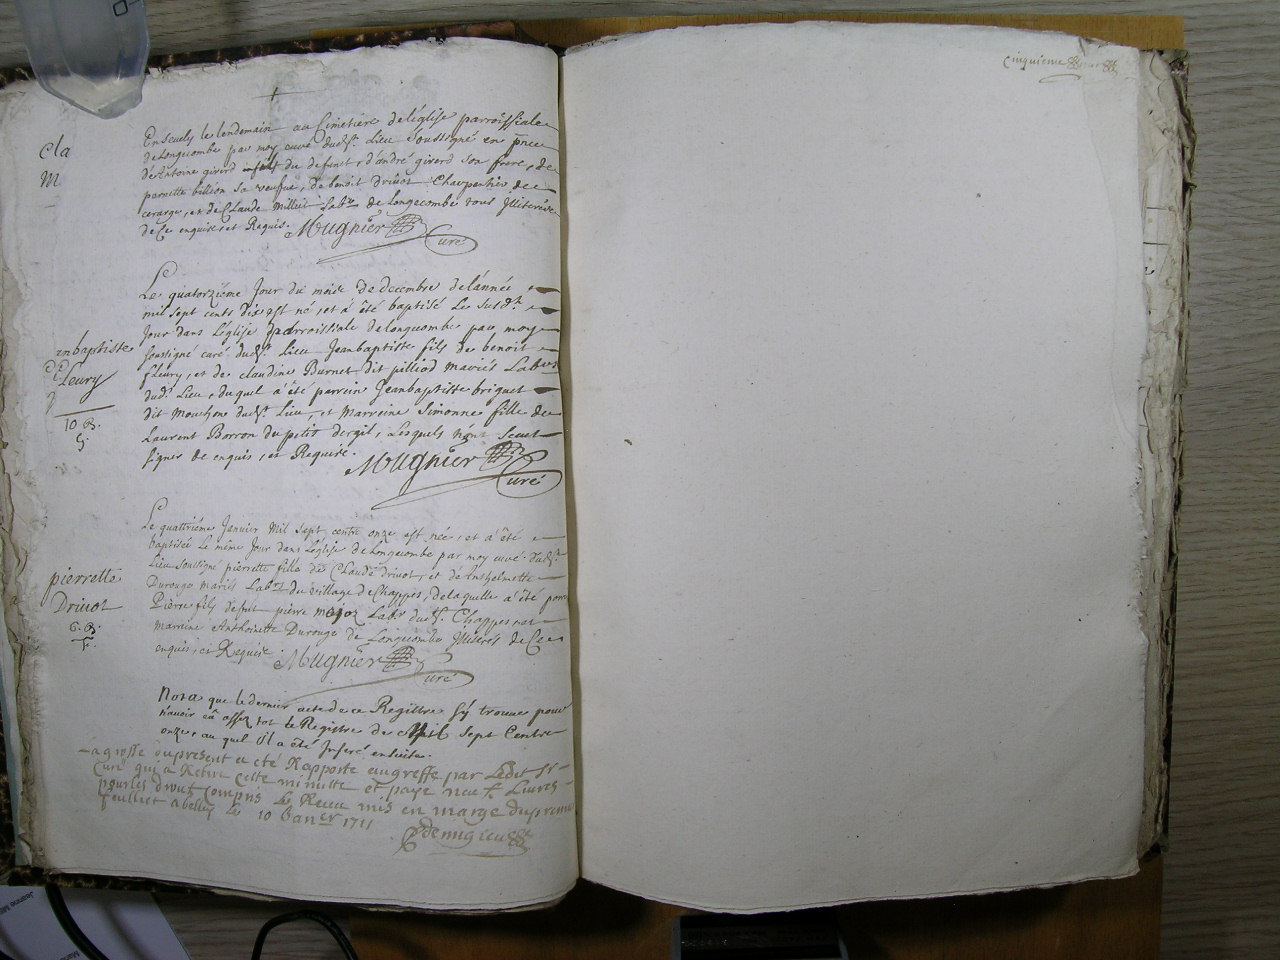 Ensevely le lendemain au Cimetière de l'églíse parroissiale
de Longecombe par moy curé dudt. Lieu soussigné en pnce
d'Antoine girerd fils du defunt, d'andré girerd son frere, de
pernette billion sa veufue, de benoit Driuot Charpentier de
et de Claude Milliet Labr. de longecombe tous Illiterés
de Ce enquis, et Requis. Mugnier
Curé
Cla
M
Le quatorziéme Jour du mois de decembre de l'année
mil sept cents dix est né, et a été baptisé Le susdt.
Jour dans L'église parroissiale de longecombe par moy
soussigné curé dudt. Lieu Jeanbaptiste fils de benoit
fleury, et de claudine Burnet dit pilliod mariés Labrs
dudt. Lieu, duquel a été parrein Jeanbaptiste briquet
dit Mouchon dudt. Lieu, et Marreine Simonne fille de
Laurent Borron du petit dergil, Lesquels n'ont sceut
signer de enquis, et Requis. Mugnier
Curé
anbaptiste
fleury
10 B.
5.
Le quattriéme Janvier Mil sept cents onze est née, et a été
baptisée Le même Jour dans L'église de Longecombe par moy curé dudt.
Lieu soussigné pierrette fille de Claude driuot, et de Anthelmette
Durouge mariés Labrs du village de Chappes, de laquelle a été parr
Piérre fils de fut pierre mejoz Labr. dudt. Chappes, et
marreine Anthoinette Durouge de Longecombe Illiterés de Ce
enquis, et Requis. Mugnier
Curé
pierrette
Driuot
6. B.
Nota que le dernier acte de ce Registre s'y trouve pour
n'avoir eû assez tot le Registre de Mil Sept Cents
onze, au quel il a été Inseré ensuite.
La grosse du present a eté Rapporté au greffe par Ledit Sr
Curé qui a Retiré Cette minutte et payé neuf Livres
pour les droits compris Le Receu mis en marge du premier
feuillet a belley Le 10 Janer 1711
Cinquieme